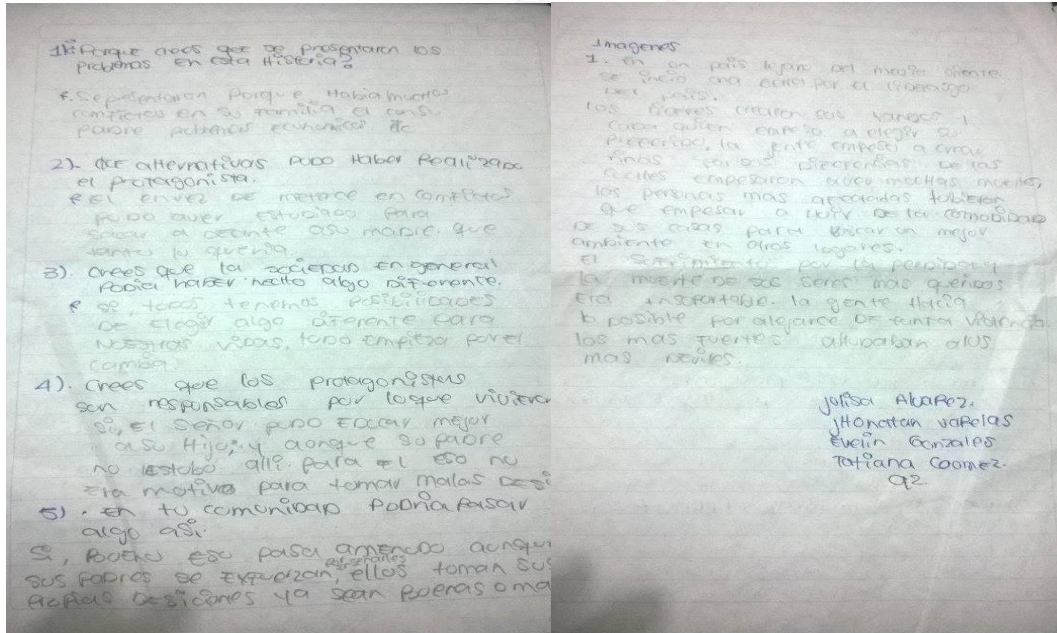 1) ¿Porque crees que se presentaron los
problemas en esta Historia?
R. Se presentaron Porque Habia muchos
conflictos en su familia el con su
padre problemas economicos etc
2). que alternativas pudo Haber Realizado
el protagonista.
R El envez de meterce en conflictos
pudo aver estudiado para
sacar a delante asu madre que
tanto lo queria
3). crees que la sociedad en general
podia haber hecho algo Diferente.
R si, todos tenemos posibilidades
De Elegir algo diferente para
nuestras vidas, todo empieza por el
cambio
4). crees que los protagonistas
son responsables por lo que vivieron
Si, El señor pudo Educar mejor
a su Hijo, y aunque su padre
no estubo alli para el eso no
Era motivo para tomar malas Desi
5) . En tu comunidad Podria Pasar
algo asi.
Si, Bueno eso pasa amenudo aunque
sus padres se Esfuerzan, ellos toman sus
propias Desiciones ya sean Buenas o ma
Imagenes
1. En un pais lejano del medio oriente
se inicio una por el liderazgo
Del pais.
los crearon sus Vandos y
cada quien empezo a elegir su
preferido, la jente empeso a crear
riñas por sus Diferencias. De las
cuales empesaron aver muchas muertes,
las personas mas afectadas tubieron
que empesar a huir De la comodidad
De sus casas para Buscar un mejor
ambiente en otros lugares.
El sufrimiento por la perdida y
la muerte De sus seres mas queridos
Era insoportable. la gente Hacia
lo posible por alejarce De tanta violencia
los mas fuertes alludaban alos
mas deviles.
julisa Alvarez.
jHonattan vaRelas
Evelin Gonzales
Tatiana Coomez.
92